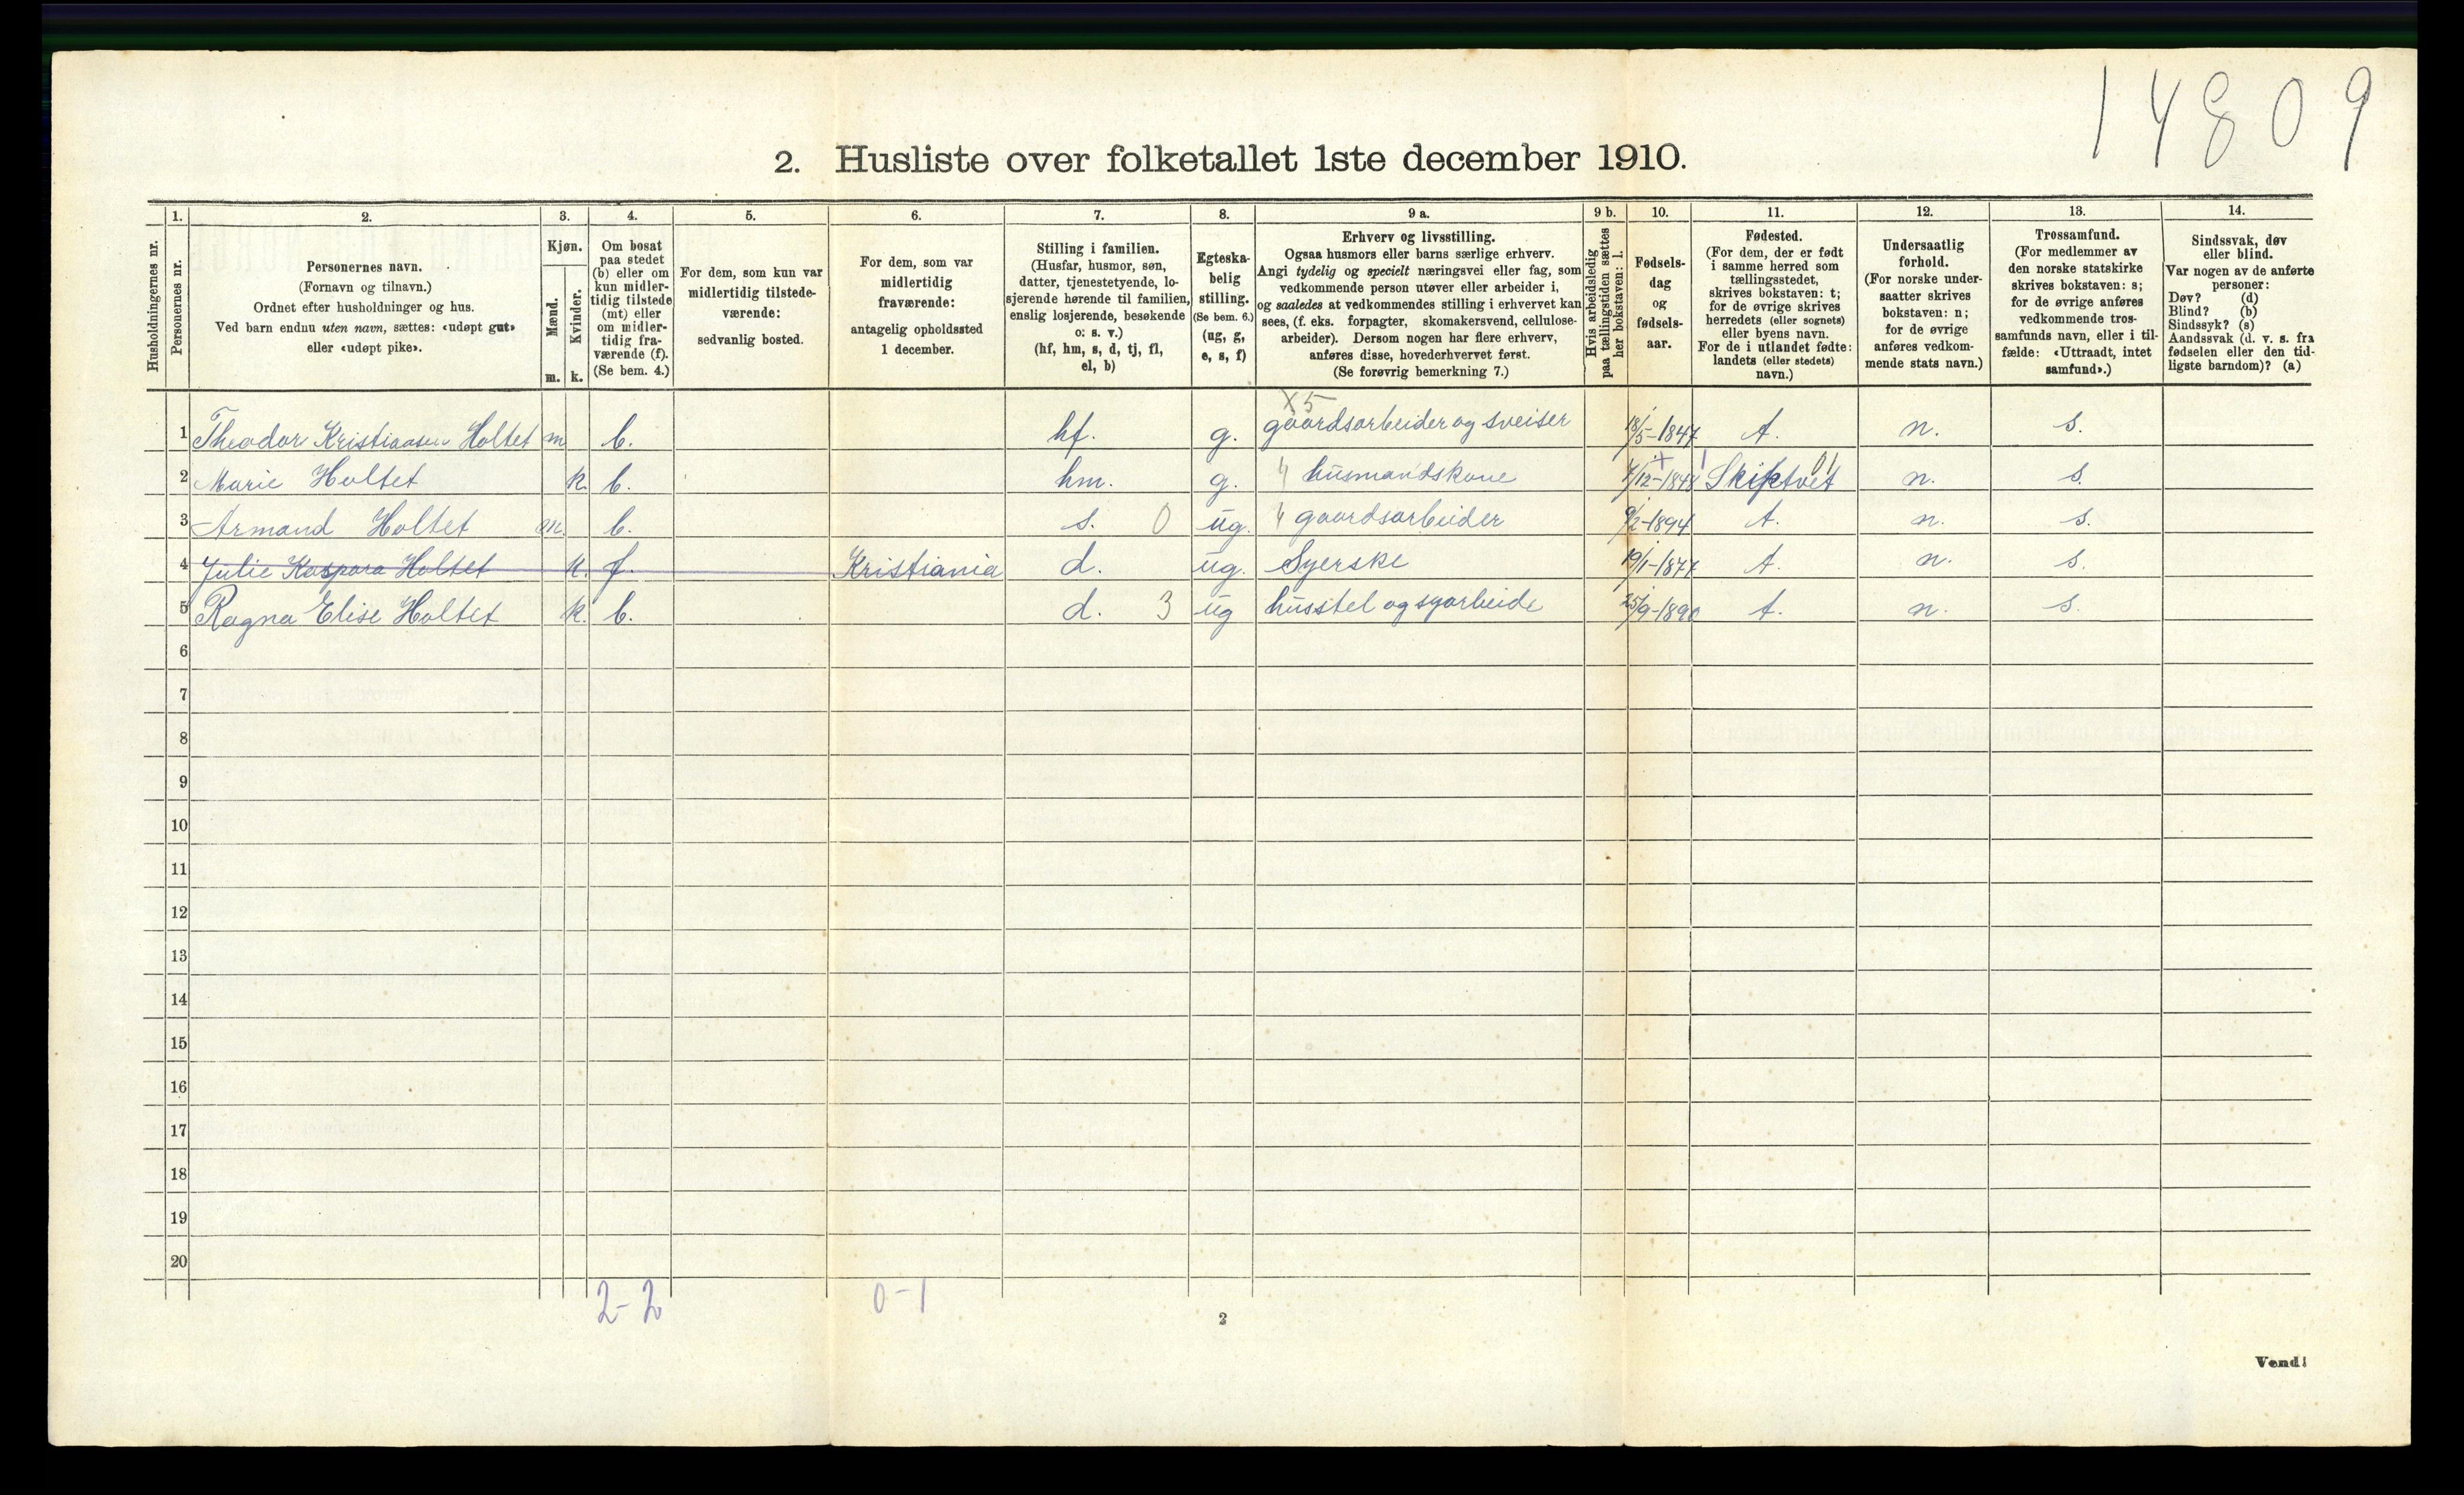 14809
2. Husliste over folketallet 1ste december 1910.
1. 2. 3. 4. 5. 6. 7. 8. 9 a. 9 b. 10. 11. 12. 13. 14.
Husholdningernes nr.
Personernes nr.
Personernes navn.
(Fornavn og tilnavn.)
Ordnet efter husholdninger og hus.
Ved barn endnu uten navn, sættes: «udøpt gut»
eller «udøpt pike».
Kjøn.
Mænd.
Kvinder.
m. k.
Om bosat
paa stedet
(b) eller om
kun midler-
tidig tilstede
(mt) eller
om midler-
tidig fra-
værende (f).
(Se bem. 4.)
For dem, som kun var
midlertidig tilstede-
værende:
sedvanlig bosted.
For dem, som var
midlertidig
fraværende:
antagelig opholdssted
1 december.
Stilling i familien.
(Husfar, husmor, søn,
datter, tjenestetyende, lo-
sjerende hørende til familien,
enslig losjerende, besøkende
o. s. v.)
(hf, hm, s, d, tj, fl,
el, b)
Egteska-
belig
stilling.
(Se bem. 6.)
(ug, g,
e, s, f)
Erhverv og livsstilling.
Ogsaa husmors eller barns særlige erhverv.
Angi tydelig og specielt næringsvei eller fag, som
vedkommende person utøver eller arbeider i,
og saaledes at vedkommendes stilling i erhvervet kan
sees, (f. eks. forpagter, skomakersvend, cellulose-
arbeider). Dersom nogen har flere erhverv,
anføres disse, hovederhvervet først.
(Se forøvrig bemerkning 7.)
Hvis arbeidsledig
paa tællingstiden sættes
her bokstaven: l.
Fødsels-
dag
og
fødsels-
aar.
Fødested.
(For dem, der er født
i samme herred som
tællingsstedet,
skrives bokstaven: t;
for de øvrige skrives
herredets (eller sognets)
eller byens navn.
For de i utlandet fødte:
landets (eller stedets)
navn.)
Undersaatlig
forhold.
(For norske under-
saatter skrives
bokstaven: n;
for de øvrige
anføres vedkom-
mende stats navn.)
Trossamfund.
(For medlemmer av
den norske statskirke
skrives bokstaven: s;
for de øvrige anføres
vedkommende tros-
samfunds navn, eller i til-
fælde: «Uttraadt, intet
samfund».)
Sindssvak, døv
eller blind.
Var nogen av de anførte
personer:
Døv? (d)
Blind? (b)
Sindssyk? (s)
Aandssvak (d. v. s. fra
fødselen eller den tid-
ligste barndom)? (a)
X5
1 Theodor Kristiansen Holtet m b. hf. g. gaardsarbeider og sveiser 18/5-1847 t. n. s.
2 Marie Holtet k. b. hm. g. husmandskone 7/12-1848 Skiptvet n. s.
3 Armand Holtet m. b. s. 0 ug. gaardsarbeider 9/2-1894 t. n. s.
4 Julie Kaspara Holtet k. f. Kristiania d. ug. Syerske 19/1-1877 t. n. s.
5 Ragna Elise Holtet k. b. d. 3 ug husstel og syarbeide 25/9-1890 t. n. s.
6
7
8
9
10
11
12
13
14
15
16
17
18
19
20
2-2 0-1
2
Vend!